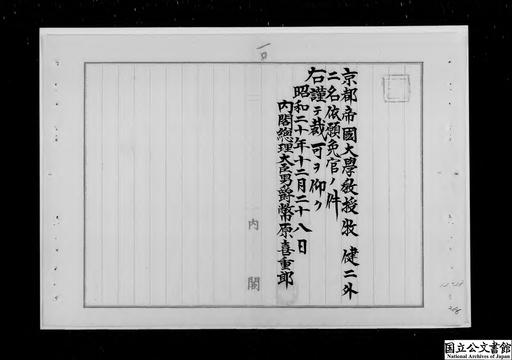 京都帝國大學教授牧健二外
二名依願免官ノ件
右謹テ裁可ヲ仰ク
昭和二十年十二月二十八日
内閣總理大臣男爵幣原喜重郎
内閣
国立公文書館
National Archives of Japan